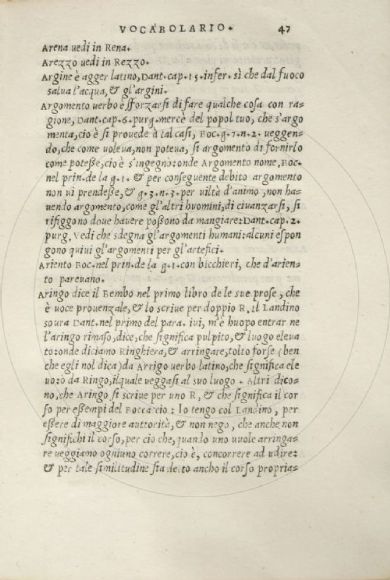 VOCABOLARIO. 47
Arena uedi in Rena.
Arezzo uedi in Rezzo.
Argine è agger latino, Dant. cap. 15. infer. sì che dal fuoco
salua l'acqua, & gl'argini.
Argomento uerbo è sforzarsi di fare qualche cosa con ra=
gione, Dant. cap. 6. purg. mercè del popol tuo, che s'argo
menta, cio è si prouede à tal casi, Boc. g. 7. n. 2. ueggen=
do, che come uoleua, non poteua, si argomento di fornirlo
come potesse, cio è s'ingegno: onde Argomento nome, Boc.
nel prin. de la g. 1. & per conseguente debito argomento
non ui prendesse, & g. 3. n. 3. per uiltà d'animo, non ha=
uendo argomento, come gl'altri huomini, di ciuanzarsi, si
rifiggono doue hauere possono da mangiare: Dant. cap. 2.
purg. Vedi che sdegna gl'argomenti humani: alcuni espon
gono quiui gl'argomenti per gl'artefici.
Ariento Boc. nel prin. de la g. 1. con bicchieri, che d'arien=
to pareuano.
Aringo dice il Bembo nel primo libro de le sue prose, che
è uoce prouenzale, & lo scriue per doppio R, il Landino
soura Dant. nel primo del para. iui, m'è huopo entrar ne
l'aringo rimaso, dice, che significa pulpito, & luogo eleua
to: onde diciamo Ringhiera, & arringare, tolto forse (ben
che egli nol dica) da Arrigo uerbo latino, che significa ele
uo: o da Ringo, il quale ueggasi al suo luogo. Altri dico=
no, che Aringo si scriue per uno R, & che significa il cor
so per essempi del Boccaccio: Io tengo col Landino, per
essere di maggiore auttorità, & non nego, che anche non
significhi il corso, per cio che, quando uno uuole arringa=
re ueggiamo ogniuno correre, cio è, concorrere ad udire:
& per tale similitudine sia detto ancho il corso propria=